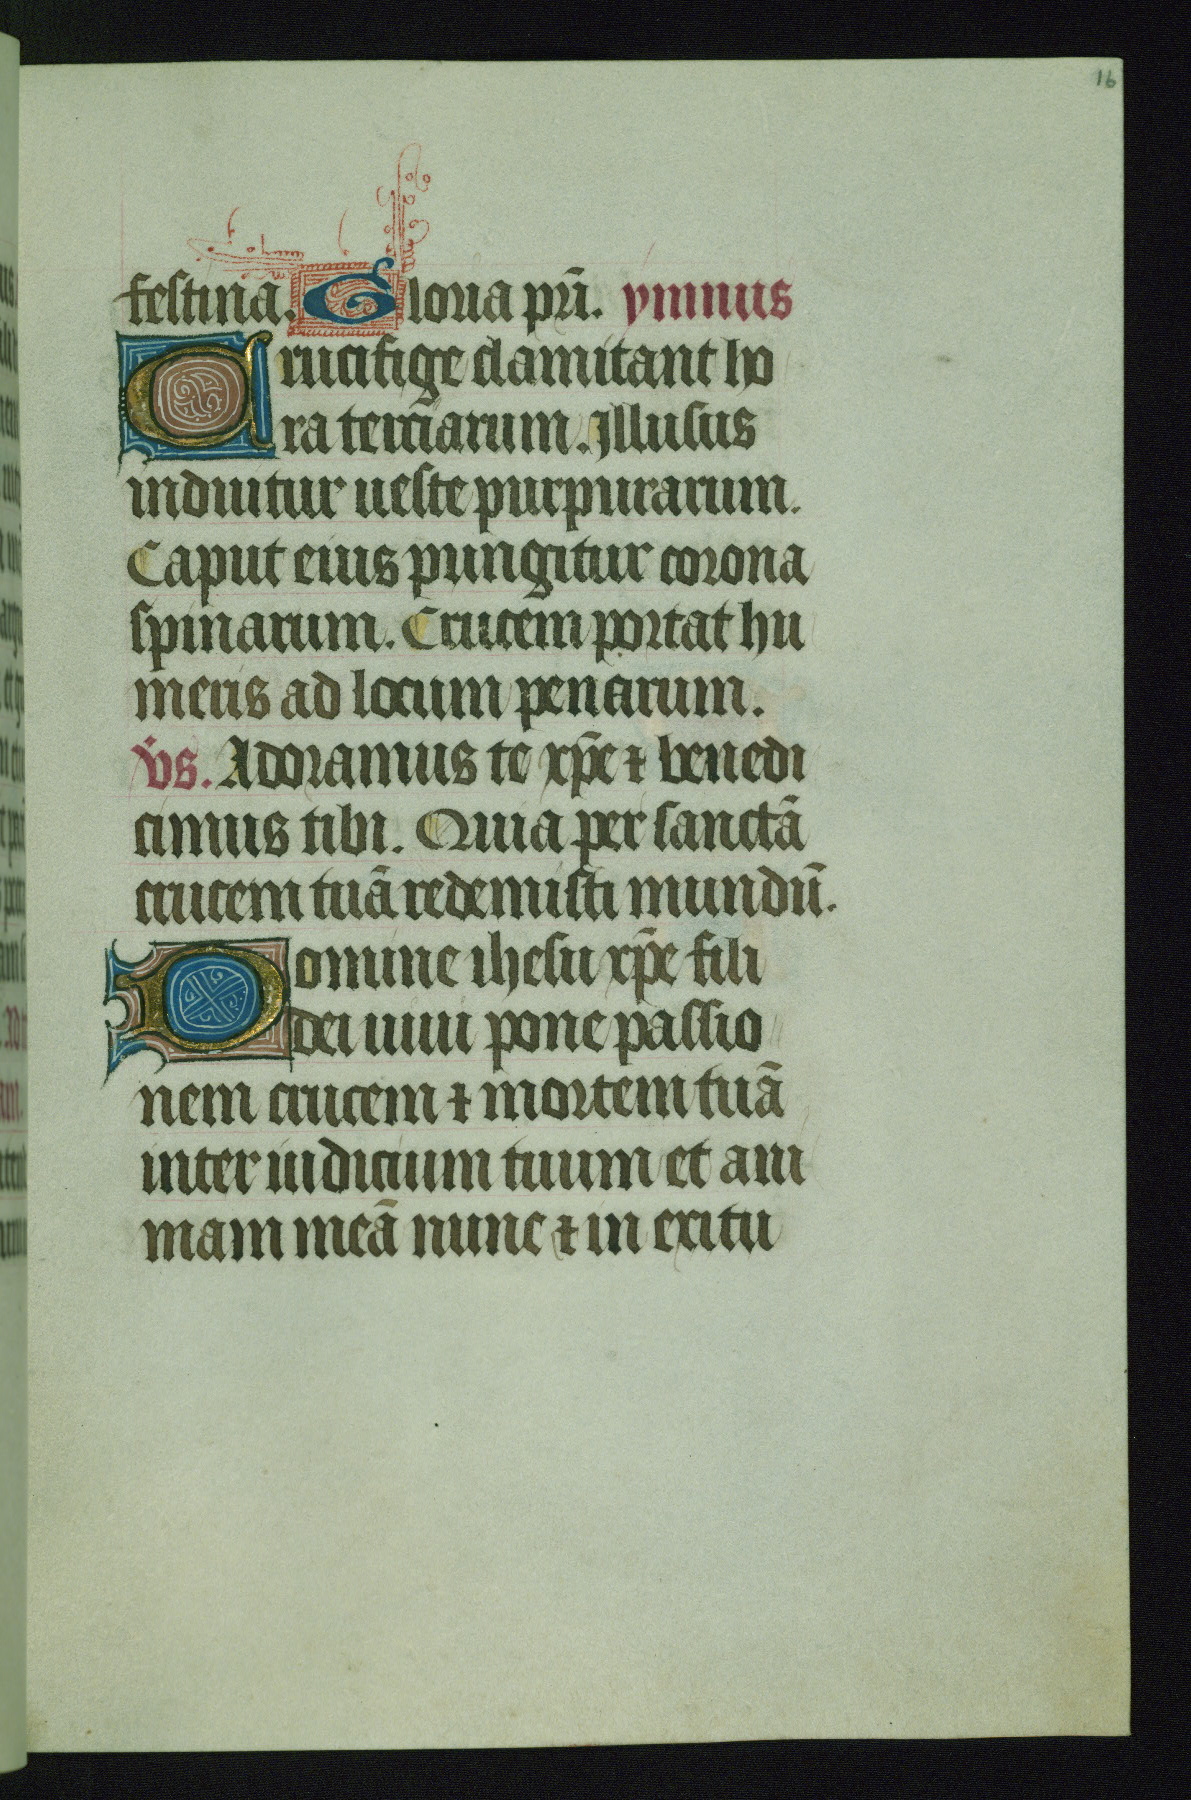 16
festina. Gloria pr̄i. ymnus
Crucifige clamitant ho
ra terciarum. Illusus
induitur ueste purpurarum.
Caput eius pungitur corona
spinarum. Crucem portat hu
meris ad locum penarum.
v̄s. Adoramus te xp̄e ⁊ benedi
cimus tibi. Quia per sanctā
crucem tuā redemisti mundū.
Domine ihesu xp̄e fili
dei uiui pone passio
nem crucem ⁊ mortem tuā
inter iudicium tuum et ani
mam meā nunc ⁊ in exitu